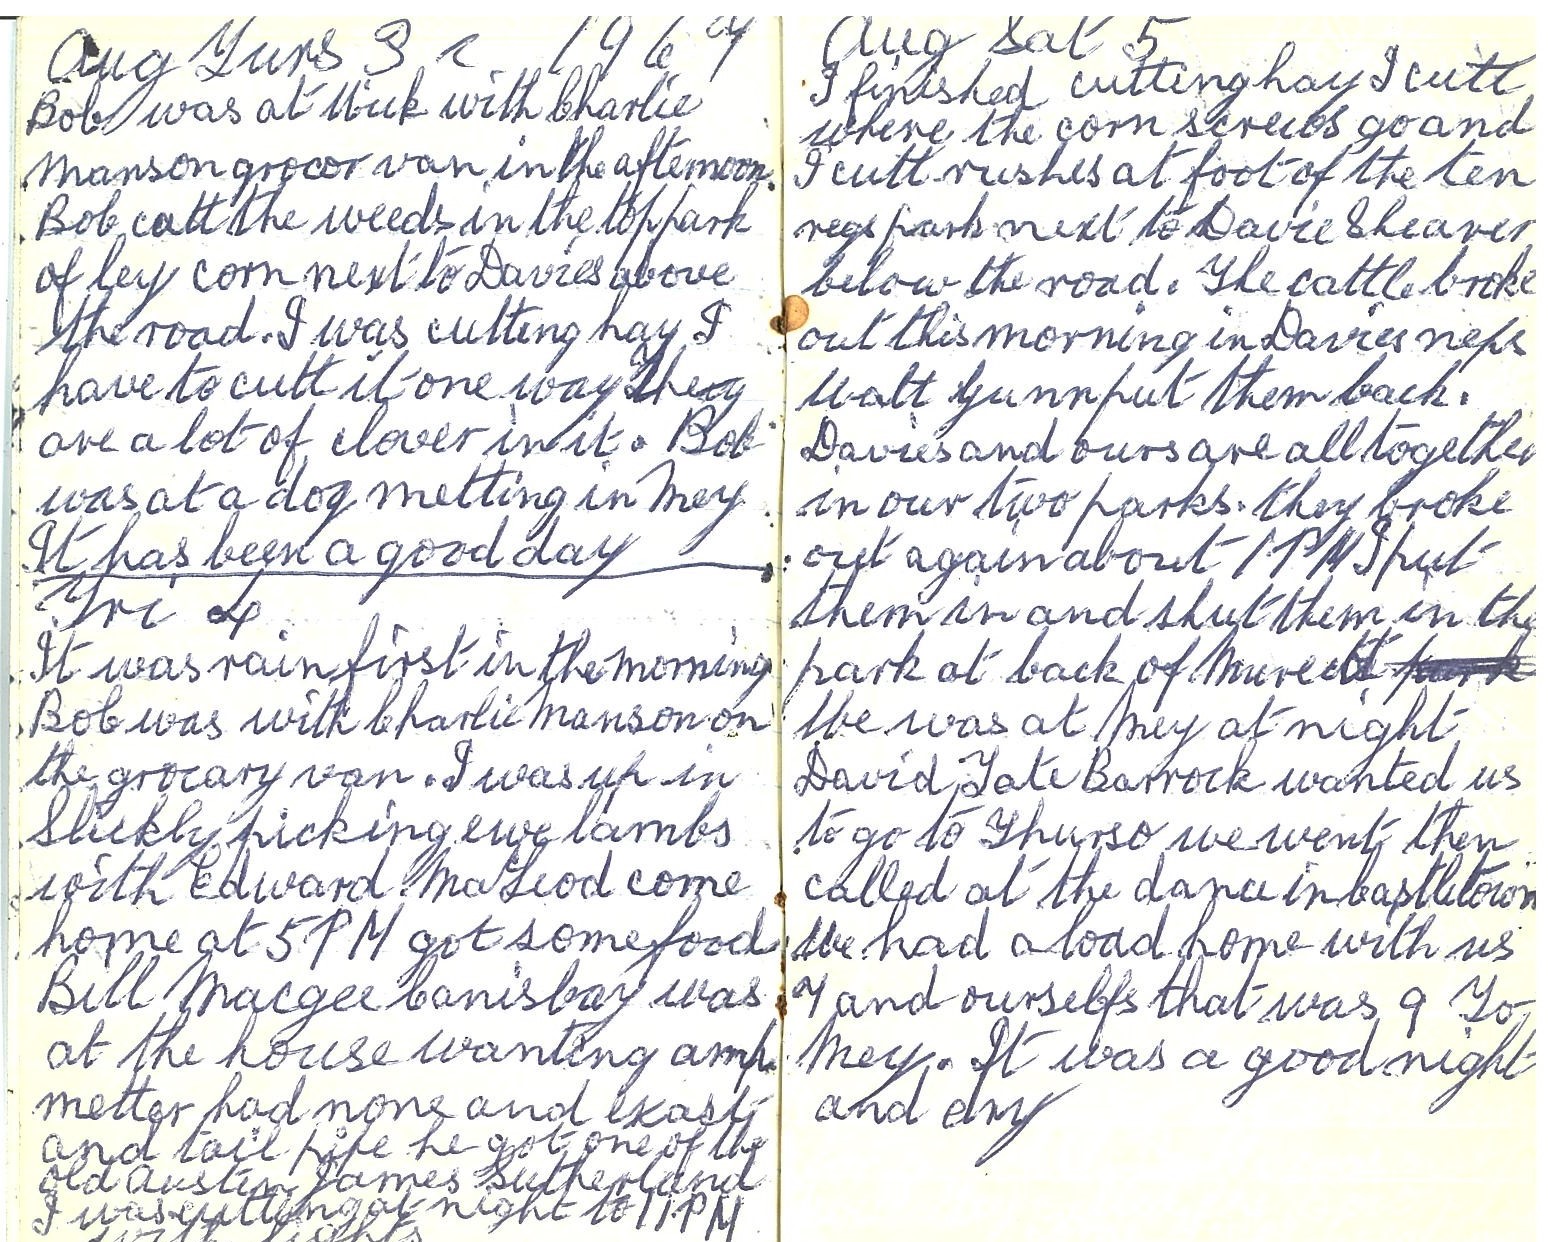 Aug Turs 3 1967
Bob was at Wick with Charlie
Manson grocor van in the afternoon.
Bob cutt the weeds in the top park
of ley corn next to Davies above
the road. I was cutting hay I
have to cutt it one way they
are a lot of clover in it. Bob
was at a dog metting in Mey
It has been a good day
Fri 4
It was rain first in the morning
Bob was with Charlie Manson on
the grocary van. I was up in
Slickly picking ewe lambs
with Edward MacLeod come
home at 5 PM got some food
Bill Macgee Canisbay was
at the house wanting amp
metter had none and exast
and tail pipe he got one of the
old Austin James Sutherland
I was cutting at night to 11 PM
with lights
Aug Sat 5
I finished cutting hay I cutt
where the corn screws go and
I cutt rushes at foot of the ten
regs park next to Davie Shearer
below the road. The cattle broke
out this morning in Davies neps
Watt Gunn put them back.
Davies and ours are all together
in our two parks. they broke
out again about 1 PM I put
them in and shut them in the
park at back of
We was at Mey at night
David Tate Barrock wanted us
to go to Thurso we went then
called at the dance in Castletown
We had a load home with us
7 and ourselfs that was 9 To
Mey. It was a good night
and dry